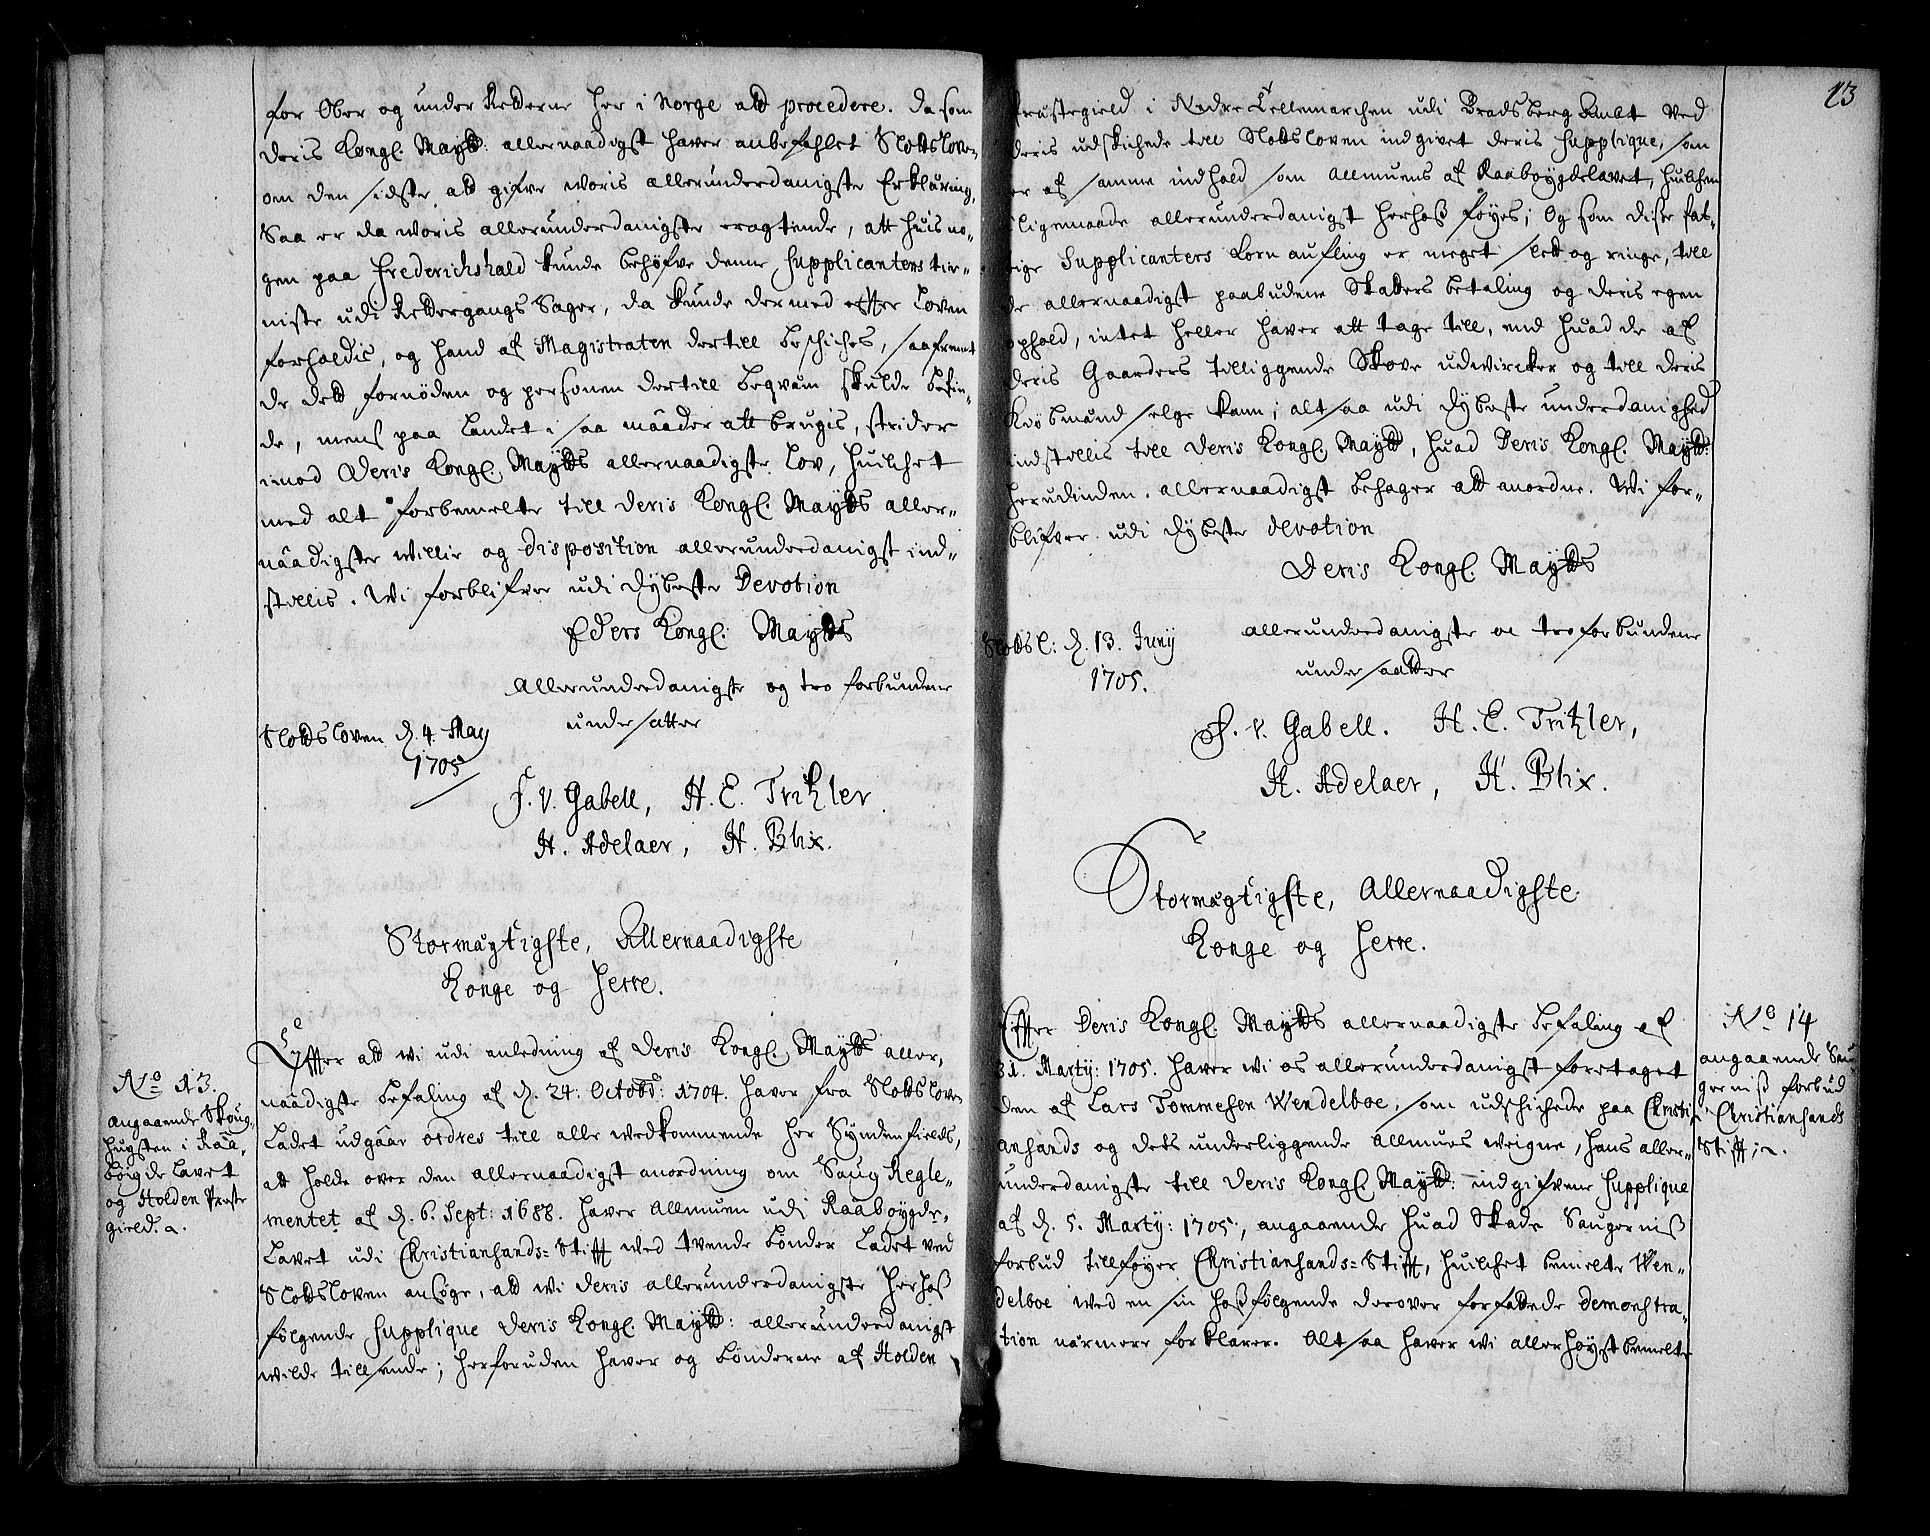 for Ober og under Retterne her i Norge att procedere. Da som
Deris Kongl. Maytt: allernaadigst haver anbefahlet Slottsloven
om den sidste att gifve woris allerunderdanigste Erklæring,
Saa er da woris allerunderdanigste eragtende, att huis no-
gen paa Frederichshald kunde behøfve denne Supplicantens tie-
niste udi Rettergangs Sager, da kunde dermed efter Loven
forholdis, og hand af Magistraten dertill beschiches, saafremt
de dett fornøden og personen dertill beqvam skulde befin-
de, mens paa Landet i saa maader att brugis, strider
imod Deris Kongl. Maytts allernaadigste Lov, huilchet
med alt forbemelte till Deris Kongl. Maytts aller-
naadigste willie og disposition allerunderdanigst ind-
stillis. Wi forblifver udi dybeste Devotion
Eders Kongl: Maytts
Allerunderdanigste og tro forbundene
undersatter
Slottsloven d. 4. May
1705
F. V. Gabell, H. E. Tritzler
H. Adelaer, H. Blix.
Stormægtigste, Allernaadigste
Konge og Herre.
No 13.
angaaende Skoug
hugsten i Raae-
bøygdelavet
og Holden Præste
gield. a.
Efter att wi udi anledning af Deris Kongl. Maytts aller-
naadigste befaling af d. 24: Octobr: 1704. haver fra Slottsloven
Ladet udgaar ordres till alle wedkommende her Syndenfields,
att holde over den allernaadigst anordning om Saug Regle-
mentet af d. 6. Sept: 1688. haver Allmuen udi Raabøygde-
Lavet udi Christianhands=Stift wed tvende bønder Ladet ved
Slottsloven ansøge, att wi deris allerunderdanigste herhoß
følgende Supplique Deris Kongl. Maytt: allerunderdanigst
wilde tillsende; herforuden haver og bønderne af Holden
13
Præstegield i Nedre Tellemarchen udi Bradsberg Ambt wed
deris udskichede till Slottsloven indgivet deris Supplique, som
er af samme indhold som Allmuens af Raabøygdelavet, huilchen
ligemaade allerunderdanigst herhoß føyes; Og som disse fat-
tige Supplicanters Kornaufling er meget slett og ringe, till
de allernaadigst paabudene Skatters betaling og deris egen
ophold, intet heller haver att tage till, end huad de af
deris Gaarders tilliggende Skove udwircker og till deris
Kiøbmand selge kann; alt saa udi dybeste underdanighed
indstillis till Deris Kongl. Maytt, huad Deris Kongl. Maytt:
herudinden allernaadigst behager att anordne. Wi for-
blifver udi dybeste devotion
Deris Kongl. Maytts
allerunderdanigste oc troforbundene
undersaatter
Slottsl: d. 13. Juny
1705.
F. V. Gabell. H. E. Tritzler,
H. Adelaer, H. Blix.
Stormægtigste, Allernaadigste
Konge og Herre.
No 14
angaaende Sau-
gerniß forbud
i Christianhands
Stift; a.
Efter Deris Kongl. Maytts allernaadigste befaling af
31. Marty: 1705. haver wi os allerunderdanigst foretaget
den af Lars Tommesen Wendelboe, som udschichede paa Christi-
anhands og dets underliggende Allmues weigne, hans aller-
underdanigste till Deris Kongl. Maytt: indgifvene Supplique
af d. 5. Marty: 1705, angaaende huad Skade Saugerniß
forbud tillføyer Christianhands=Stift, huilchet bemelte Wen-
delboe wed en sin hoßfølgende derover forfattede demonstra-
tion nærmere forklarer. Alt saa haver wi allerhøyst bemelte